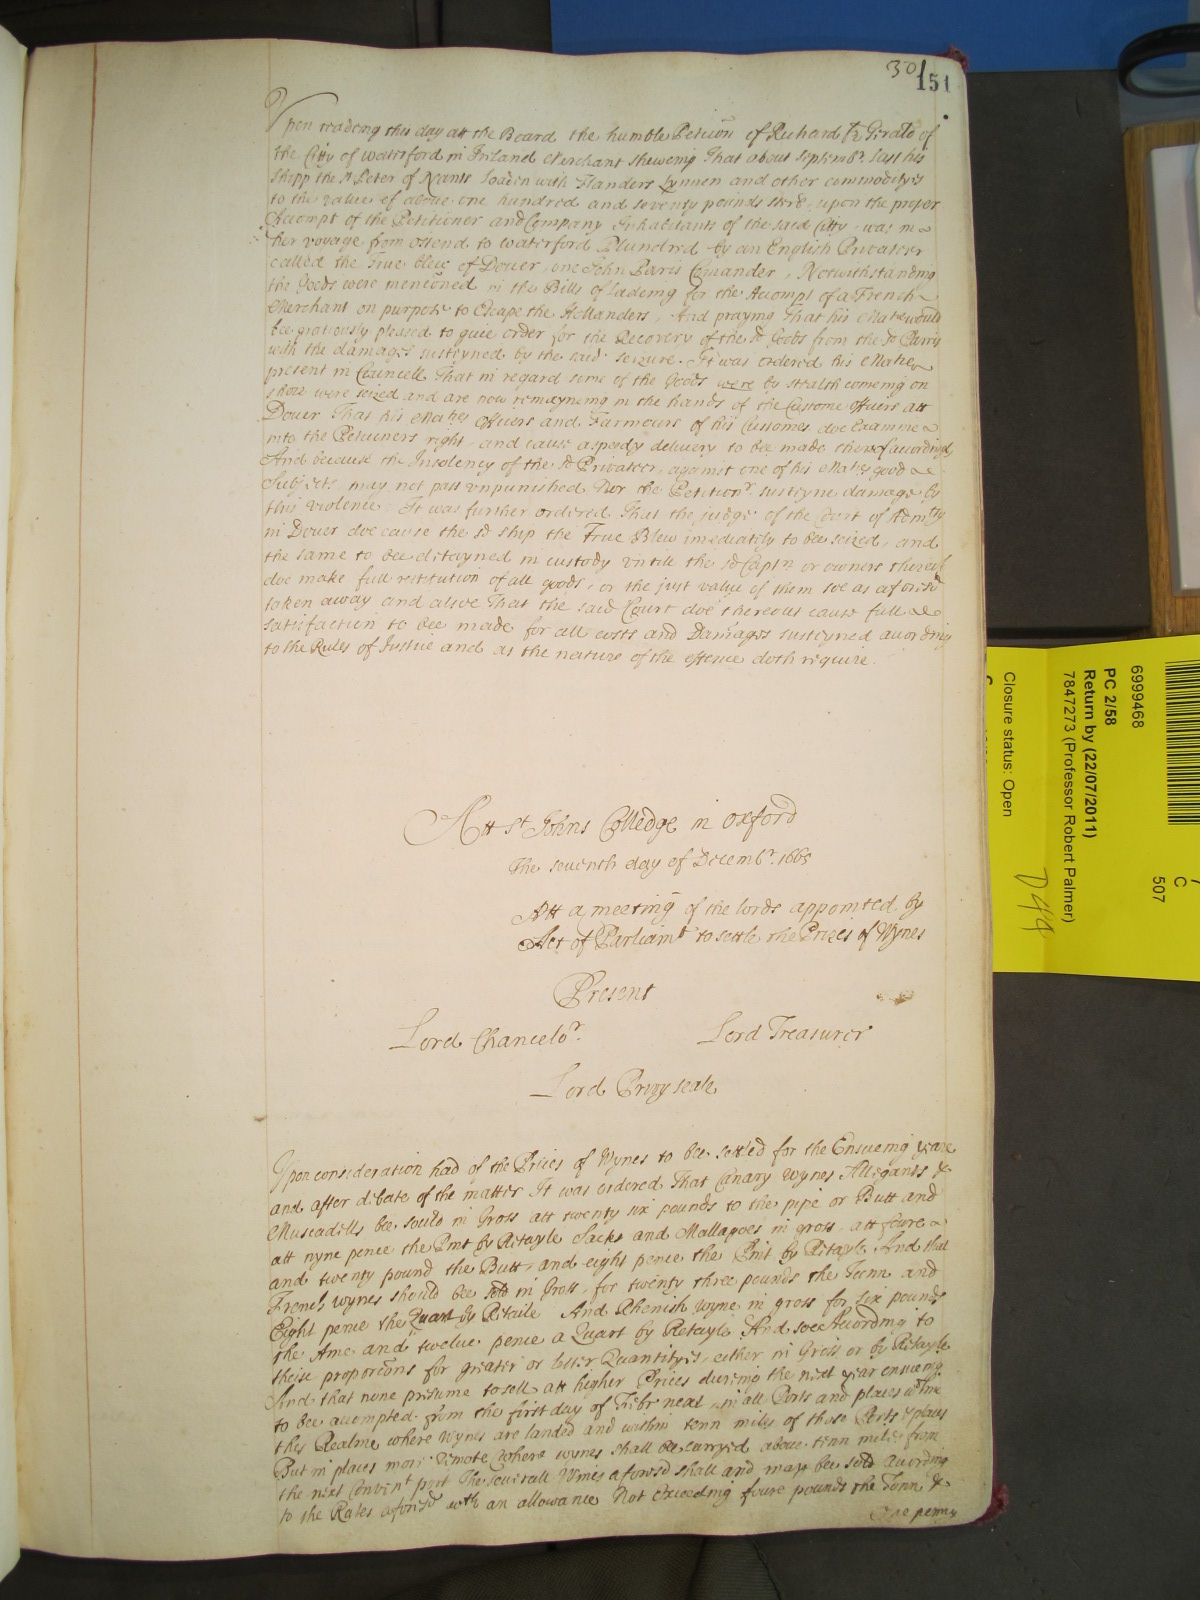 30
151
Upon reading this day att the Board the humble Peticõn of Richard fz Gerald of
the Citty of waterford in Irland Merchant shewing That about Septemb.r last his
shipp the St Peter of Nants loaden with Flanders Lynnen and other commodityes
to the value of above one hundred and seventy pounds sterl. upon the proper
Accompt of the Petitioner and Company Inhabitants of the said Citty, was in
her voyage from ostend to waterford Plundred by an English Privateer
called the True blew of Dover, one John Paris Comander, Notwithstanding
the goods were mencõned in the Bills of Ladeing for the Accompt of a French
Merchant on purpose to Escape the Hollanders, And praying That his Matie would
bee gratiously pleased to give order for the Recovery of the sd Goods from the sd Parris
with the damages susteyned by the said seizure. It was ordered his Matie
present in Councell That in regard some of the Goods were by stealth comeing on
shore were seized and are now remayning in the hands of the Custome officers att
Dover That his Maties officers and Farmours of his Customes doe Examine
into the Petitioners right, and cause a speedy delivery to bee made thereof accordingly
And because the Insolency of the sd Privateer, against one of his Maties good
Subjects may not pass vnpunished Nor the Petitionr susteyne damage by
this violence It was further ordered That the judge of the Court of Admlty
in Dover doe cause the sd ship the True Blew imediatly to bee seized, and
the same to bee deteyned in custody vntill the sd Captn or owners thereof
doe make full restitution of all goods, or the just value of them soe as aforesd
taken away and alsoe That the said Court doe thereout cause full
satisfaction to bee made for all costs and Damages susteyned according
to the Rules of Justice and as the nature of the offence doth require.
Att St Johns Colledge in Oxford
The seventh day of Decemb.r 1665
Att a meeting of the lords appointed by
Act of Parliamt to settle the Prizes of Wynes
Present
Lord Chancelo.r
Lord Treasurer
Lord Privy seale
Upon consideration had of the Prices of Wynes to bee setled for the Ensueing yeare
and after debate of the matter It was ordered That Canary Wynes Allegants &
Muscadells be sould in Gross att twenty six pounds to the pipe or Butt and
att nyne pence the Pint by Retayle Sacks and Mallagoes in gross att foure
and twenty pound the Butt, and eight pence the Pint by Retayle. And that
French wynes should bee sold in Gross for twenty three pounds the Tonn and
Eight pence the Quart by Retaile And Rhenish wyne in gross for six pounds
the Ame and twelve pence a Quart by Retayle And soe According to
these proporcõns for greater or lesser Quantityes, either in Gross or by Retayle
And that none presume to sell att higher Prices dureing the next year ensueing
to bee accompted from the first day of Febr: next in all Ports and places wthin
this Realme where Wynes are landed and within tenn miles of those Ports & places
But in places more Remote where wynes shall be carryed above tenn miles from
the next Convent port The severall Wines aforesd shall and may bee sold according
to the Rates aforesd wth an allowance Not exceeding foure pounds the Tonn, &
one penny
6999468
PC 2/58
Return by (22/07/2011)
7847273 (Professor Robert Palmer)
Closure status: Open
C
507